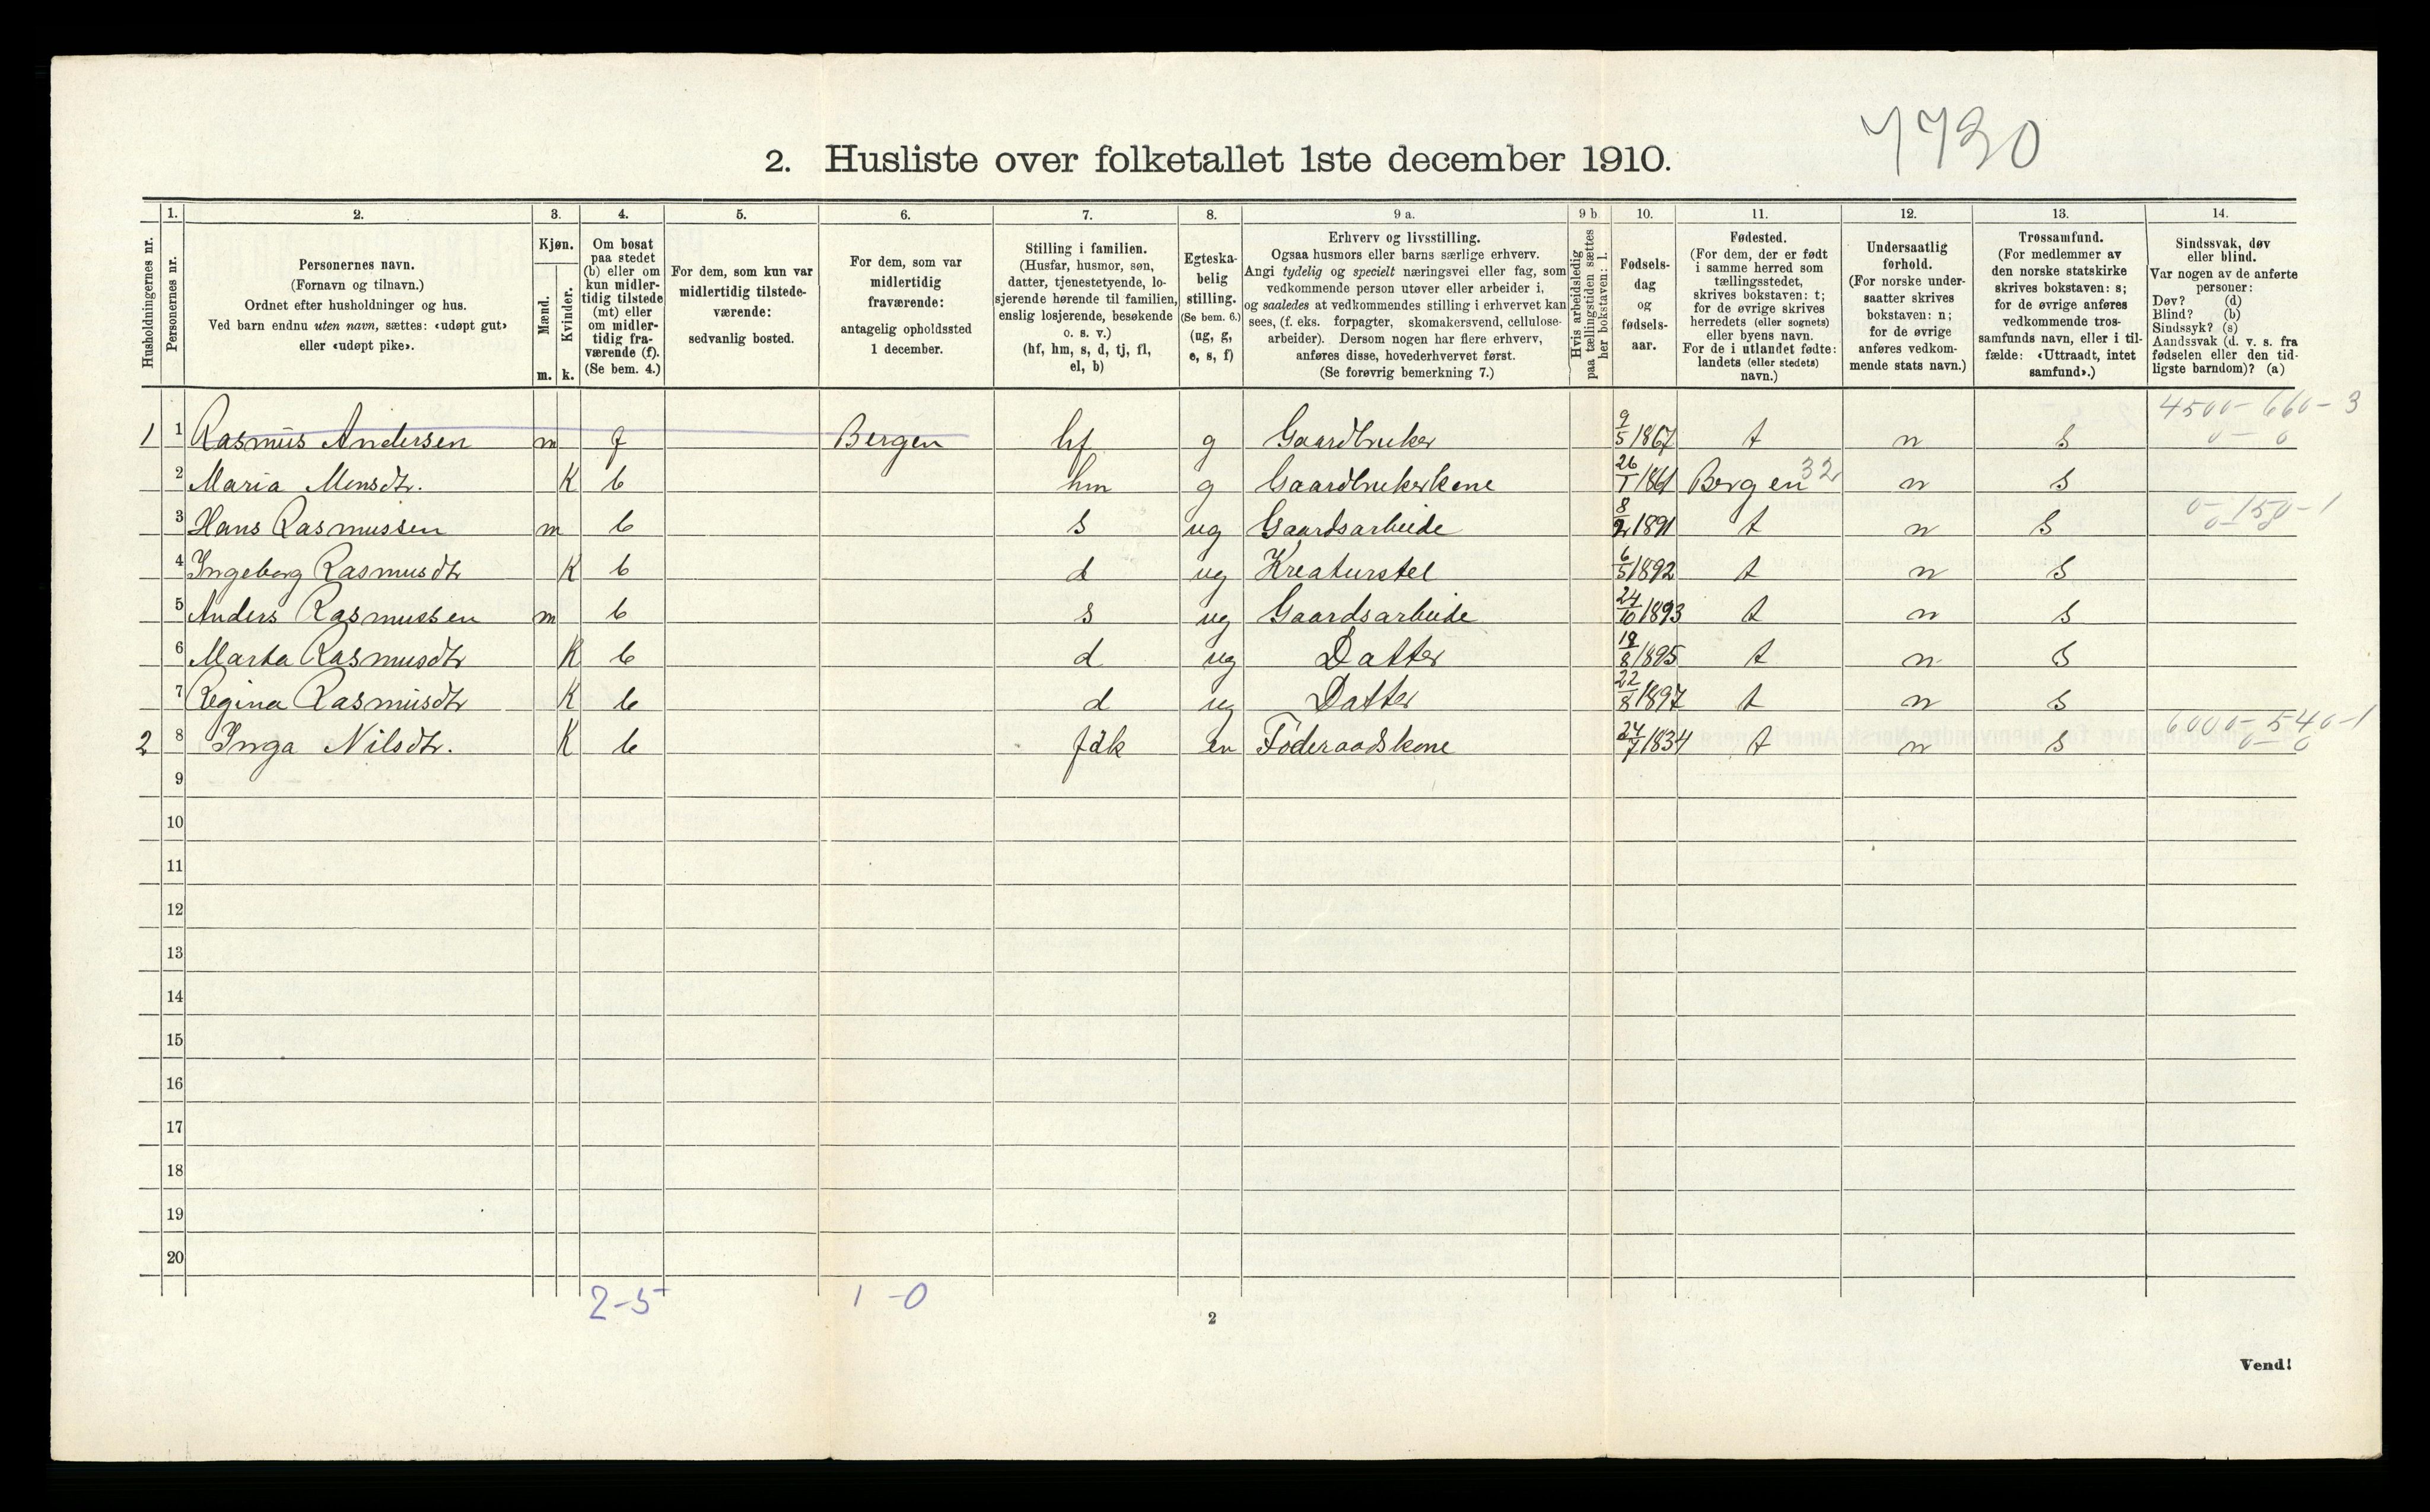 7730
2. Husliste over folketallet 1ste december 1910.
1. 2. 3. 4. 5. 6. 7. 8. 9 a. 9 b 10. 11. 12. 13. 14.
Husholdningernes nr.
Personernes nr.
Personernes navn.
(Fornavn og tilnavn.)
Ordnet efter husholdninger og hus.
Ved barn endnu uten navn, sættes: «udøpt gut»
eller «udøpt pike».
Kjøn.
Mænd.
Kvinder.
m. k.
Om bosat
paa stedet
(b) eller om
kun midler-
tidig tilstede
(mt) eller
om midler-
tidig fra-
værende (f).
(Se bem. 4.)
For dem, som kun var
midlertidig tilstede-
værende:
sedvanlig bosted.
For dem, som var
midlertidig
fraværende:
antagelig opholdssted
1 december.
Stilling i familien.
(Husfar, husmor, søn,
datter, tjenestetyende, lo-
sjerende hørende til familien,
enslig losjerende, besøkende
o. s. v.)
(hf, hm, s, d, tj, fl,
el, b)
Egteska-
belig
stilling.
(Se bem. 6.)
(ug, g,
e, s, f)
Erhverv og livsstilling.
Ogsaa husmors eller barns særlige erhverv.
Angi tydelig og specielt næringsvei eller fag, som
vedkommende person utøver eller arbeider i,
og saaledes at vedkommendes stilling i erhvervet kan
sees, (f. eks. forpagter, skomakersvend, cellulose-
arbeider). Dersom nogen har flere erhverv,
anføres disse, hovederhvervet først.
(Se forøvrig bemerkning 7.)
Hvis arbeidsledig
paa tællingstiden sættes
her bokstaven: l.
Fødsels-
dag
og
fødsels-
aar.
Fødested.
(For dem, der er født
i samme herred som
tællingsstedet,
skrives bokstaven: t;
for de øvrige skrives
herredets (eller sognets)
eller byens navn.
For de i utlandet fødte:
landets (eller stedets)
navn.)
Undersaatlig
forhold.
(For norske under-
saatter skrives
bokstaven: n;
for de øvrige
anføres vedkom-
mende stats navn.)
Trossamfund.
(For medlemmer av
den norske statskirke
skrives bokstaven: s;
for de øvrige anføres
vedkommende tros-
samfunds navn, eller i til-
fælde: «Uttraadt, intet
samfund».)
Sindssvak, døv
eller blind.
Var nogen av de anførte
personer:
Døv? (d)
Blind? (b)
Sindssyk? (s)
Aandssvak (d. v. s. fra
fødselen eller den tid-
ligste barndom)? (a)
4500 - 660 - 3
1 1 Rasmus Andersen m f Bergen hf g Gaardbruker 9/5 1867 t n s 0 - 0
2 Maria Monsdtr. K b hm g Gaardbrukerkone 26/1 1861 Bergen 32 n s
0 - 150 - 1
3 Hans Rasmussen m b s ug Gaardsarbeide 8/2 1891 t n s 0 - 0
4 Ingeborg Rasmusdtr K b d ug Kreaturstel 6/5 1892 t n s
5 Anders Rasmussen m b s ug Gaardsarbeide 24/10 1893 t n s
6 Marta Rasmusdtr K b d ug Datter 18/8 1895 t n s
7 Regina Rasmusdtr K b d ug Datter 22/8 1897 t n s
6000 - 540 - 1
2 8 Inga Nilsdtr. K b fdk en Føderaadskone 27/7 1834 t n s 0 - 0
9
10
11
12
13
14
15
16
17
18
19
20
2-5 1-0
2
Vend!